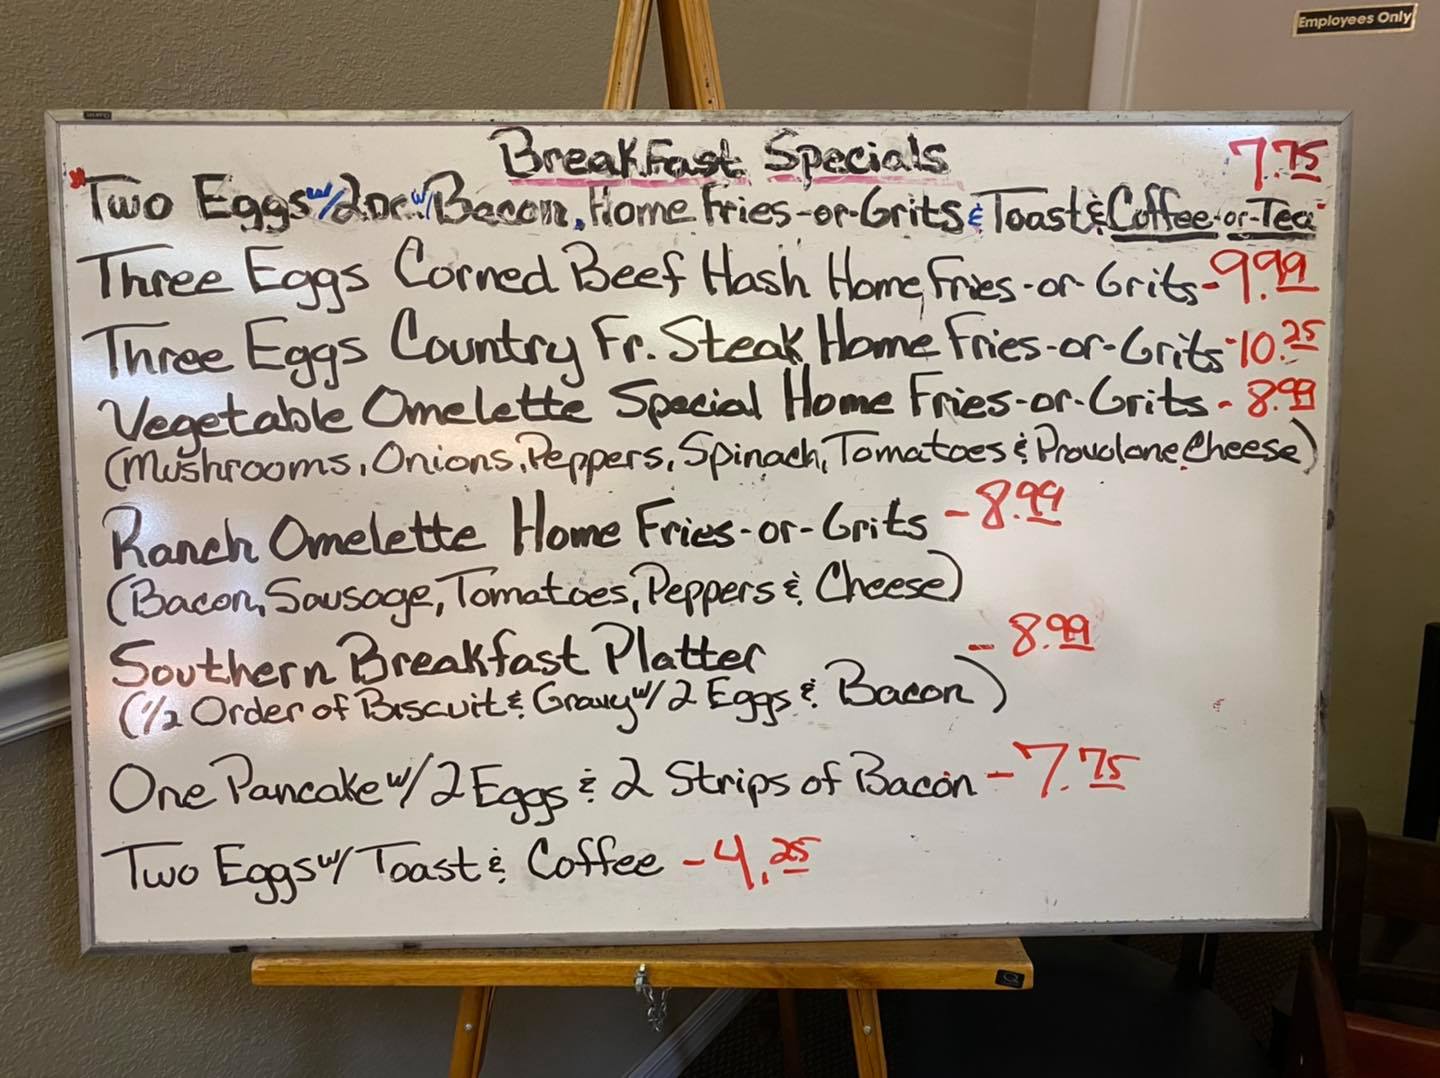 Employees Only
Breakfast Specials 7.75
"Two Eggs w/ 2 pc. w/ Bacon, Home Fries-or-Grits & Toast & Coffee-or-Tea"
Three Eggs Corned Beef Hash Home Fries-or-Grits-9.99
Three Eggs Country Fr. Steak Home Fries-or-Grits-10.25
Vegetable Omelette Special Home Fries-or-Grits-8.99
(Mushrooms, Onions, Peppers, Spinach, Tomatoes & Provolone Cheese)
Ranch Omelette Home Fries-or-Grits -8.99
(Bacon, Sausage, Tomatoes, Peppers & Cheese)
Southern Breakfast Platter -8.99
(1/2 Order of Biscuit & Gravy w/ 2 Eggs & Bacon)
One Pancake w/ 2 Eggs & 2 Strips of Bacon -7.75
Two Eggs w/ Toast & Coffee -4.25